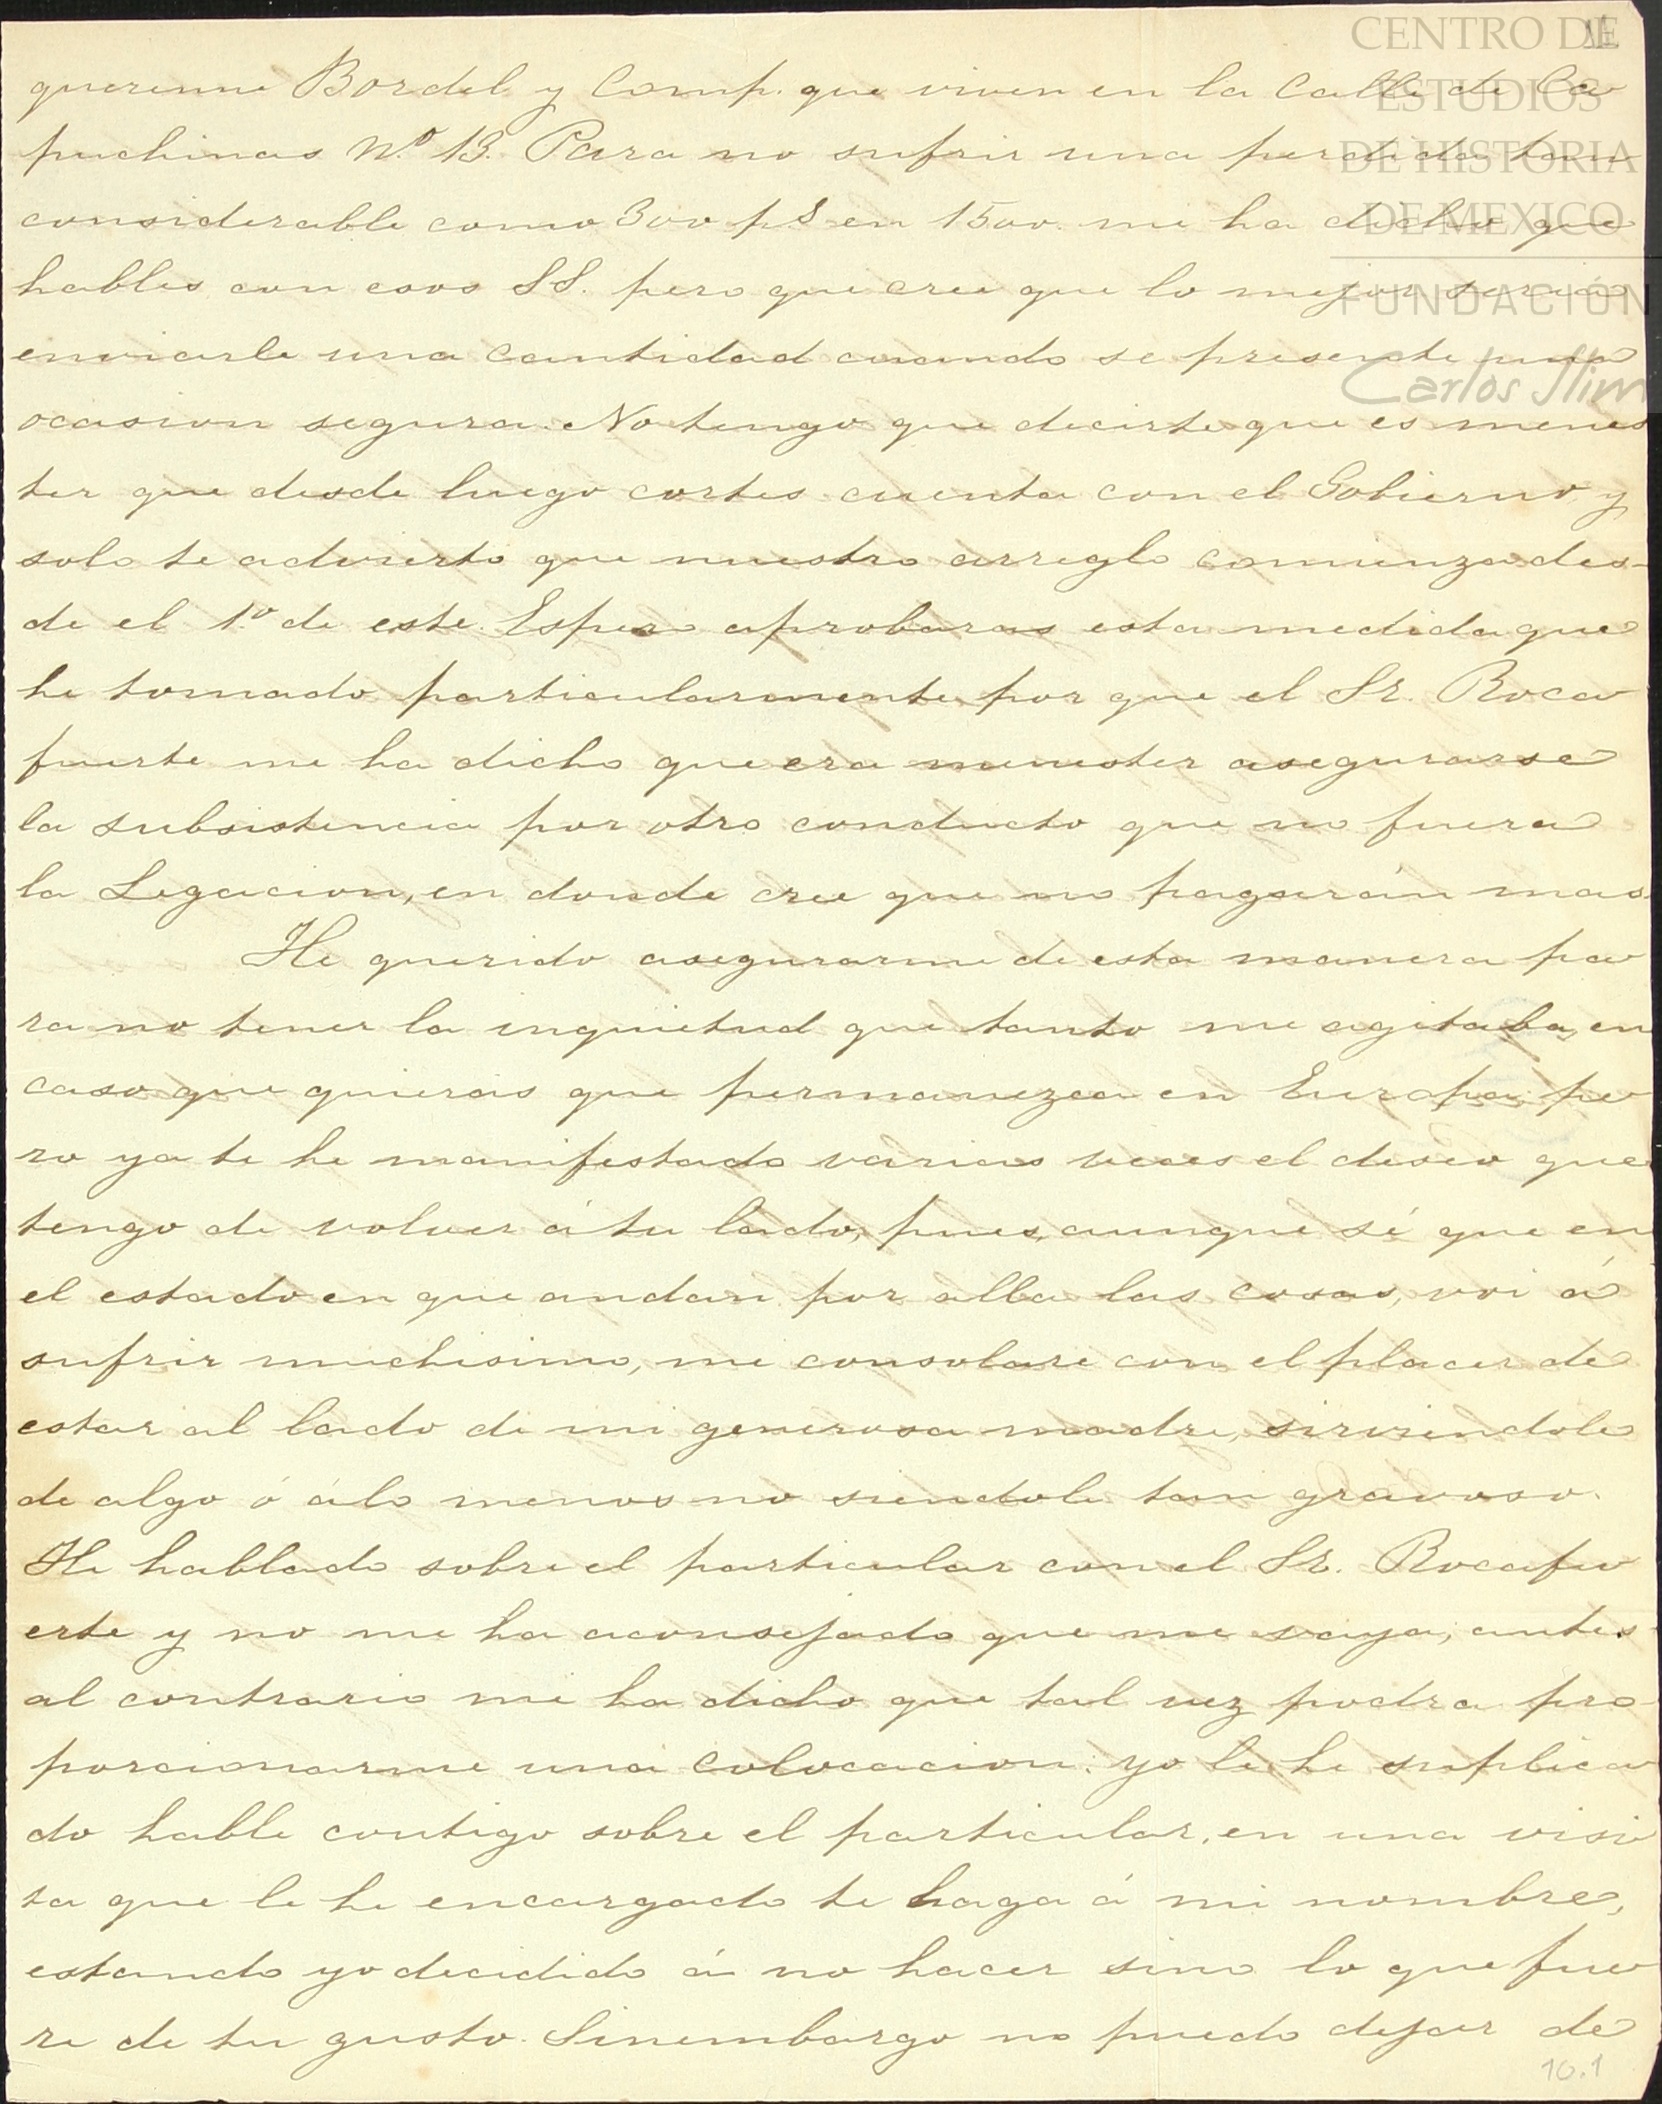 CENTRO DE
ESTUDIOS
DE HISTORIA
DE MEXICO
FUNDACIÓN
Carlos Slim
Bordel y Comp. que viven en la Calle de Ca
puchinas N.º 13. Para no sufrir una perdida tan
considerable como 300 p.s en 1500. me ha dicho que
hables con esos SS. pero que cree que lo mejor seria
enviarle una cantidad cuando se presente una
ocasion segura. No tengo que decirte que es menes
ter que desde luego cortes cuenta con el Gobierno y
solo te advierto que nuestro arreglo comienza des-
de el 1.º de este. Espero aprobaras esta medida que
he tomado particularmente por que el Sr. Roca
fuerte me ha dicho que era menester asegurarse
la subsistencia por otro conducto que no fuera
la Legacion, en donde cree que no pagarán mas.
He querido asegurarme de esta manera pa
ra no tener la inquietud que tanto me agitaba, en
caso que quieras que permanezca en Europa; pe
ro ya te he manifestado varias veces el deseo que
tengo de volver á tu lado, pues, aunque sé que en
el estado en que andan por alla las cosas, voi á
sufrir muchisimo, me consolare con el placer de
estar al lado de mi generosa madre, sirviendole
de algo ó á lo menos no siendole tan gravoso.
He hablado sobre el particular con el Sr. Rocafu
erte y no me ha aconsejado que me vaya, antes
al contrario me ha dicho que tal vez podra pro-
porcionarme una colocacion; yo le he suplica
do hable contigo sobre el particular, en una visi
ta que le he encargado te haga á mi nombre,
estando yo decidido á no hacer sino lo que fue
re de tu gusto. Sinembargo no puedo dejar de
10.1